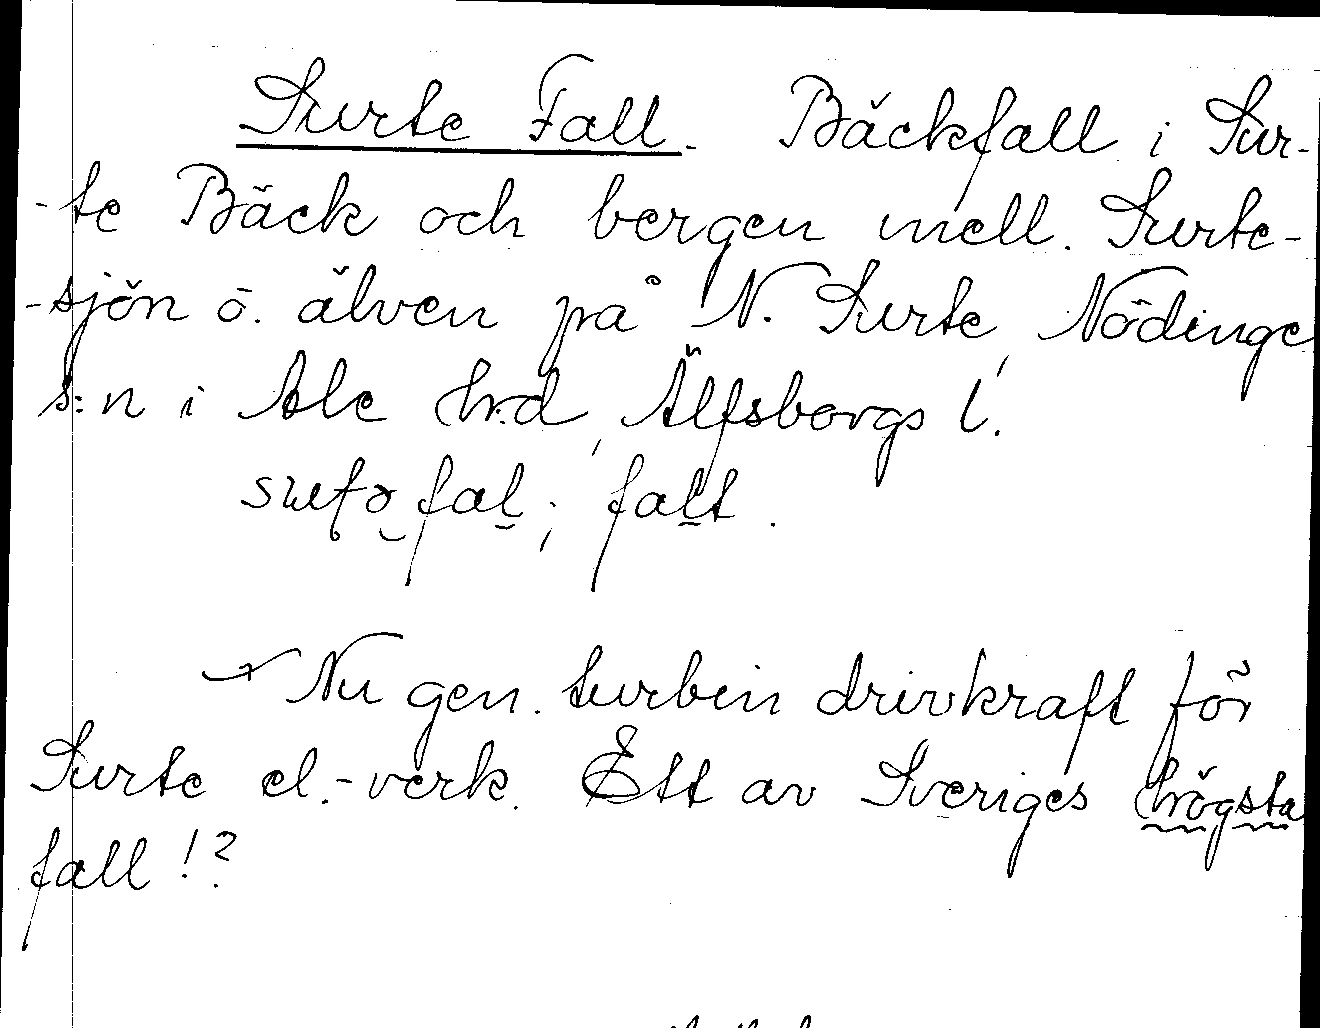 Surte Fall. Bäckfall i Sur-
-te Bäck och bergen mell. Surte-
-sjön o. älven på N. Surte, Nödinge
s:n i Ale hrd, Älfsborgs l.
fal; falt.
Nu gen. turbin drivkraft för
Surte el.-verk. Ett av Sveriges högsta
fall!?